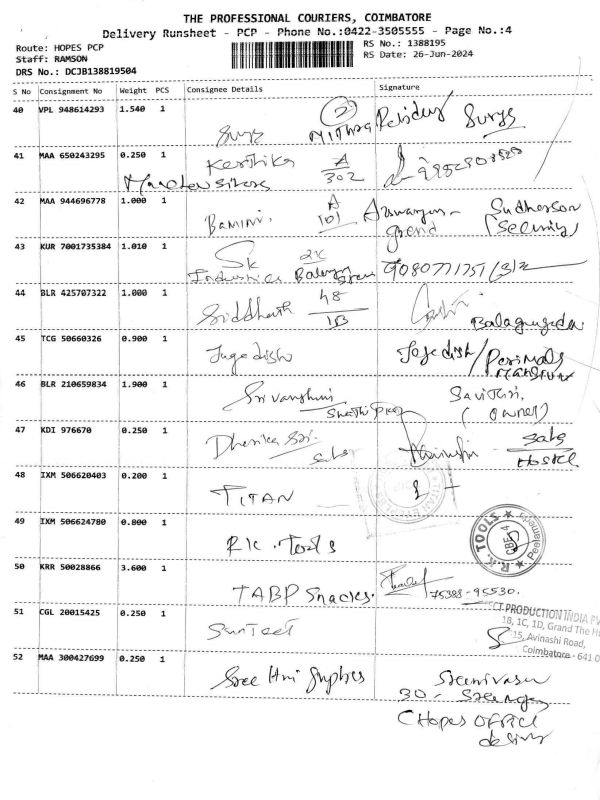 THE PROFESSIONAL COURIERS, COIMBATORE
Delivery Runsheet - PCP - Phone No.:0422-3505555 - Page No.:4
Route: HOPES PCP RS No.: 1388195
Staff: RAMSON RS Date: 26-Jun-2024
DRS No.: DCJB138819504
S No Consignment No Weight PCS Consignee Details Signature
40 VPL 948614293 1.540 1 Surys (2) Surys
41 MAA 650243295 0.250 1 Karthika A/302
42 MAA 944696778 1.000 1 Bamini. A/101 grand Sudherson (Security)
43 KUR 7001735384 1.010 1 SK Industries 9080771751
44 BLR 425707322 1.000 1 Siddharth 48/1B
45 TCG 50660326 0.900 1 Jagedish Jagedish
46 BLR 210659834 1.900 1 Srivarshini Savithri. (owner)
47 KDI 976670 0.250 1 Hostel
48 IXM 506620403 0.200 1 TITAN
49 IXM 506624780 0.800 1 R.K. Tools R.K. TOOLS ★ CBE-4 ★ Peelamedu
50 KRR 50028866 3.600 1 TABP Snacks. 75388-95530.
51 CGL 20015425 0.250 1 CT PRODUCTION INDIA PV
1B, 1C, 1D, Grand The H
15, Avinashi Road,
Coimbatore - 641 0
52 MAA 300427699 0.250 1 Sree Hari Sreenivasu
30 -
(Hopes OFFICE